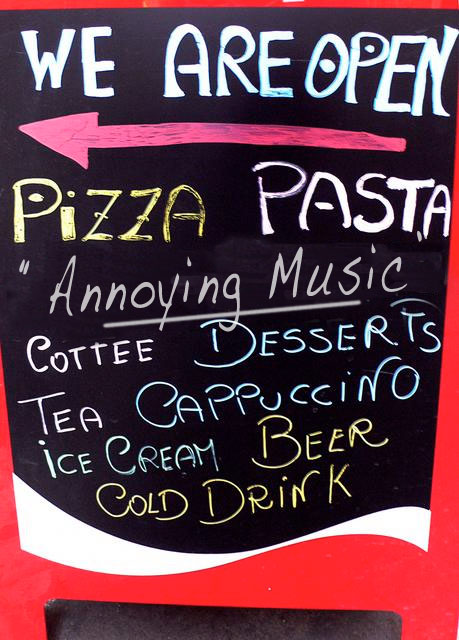 WE ARE OPEN
PIZZA PASTA
" Annoying Music
COTTEE DESSERTS
TEA CAPPUCCINO
ICE CREAM BEER
COLD DRINK